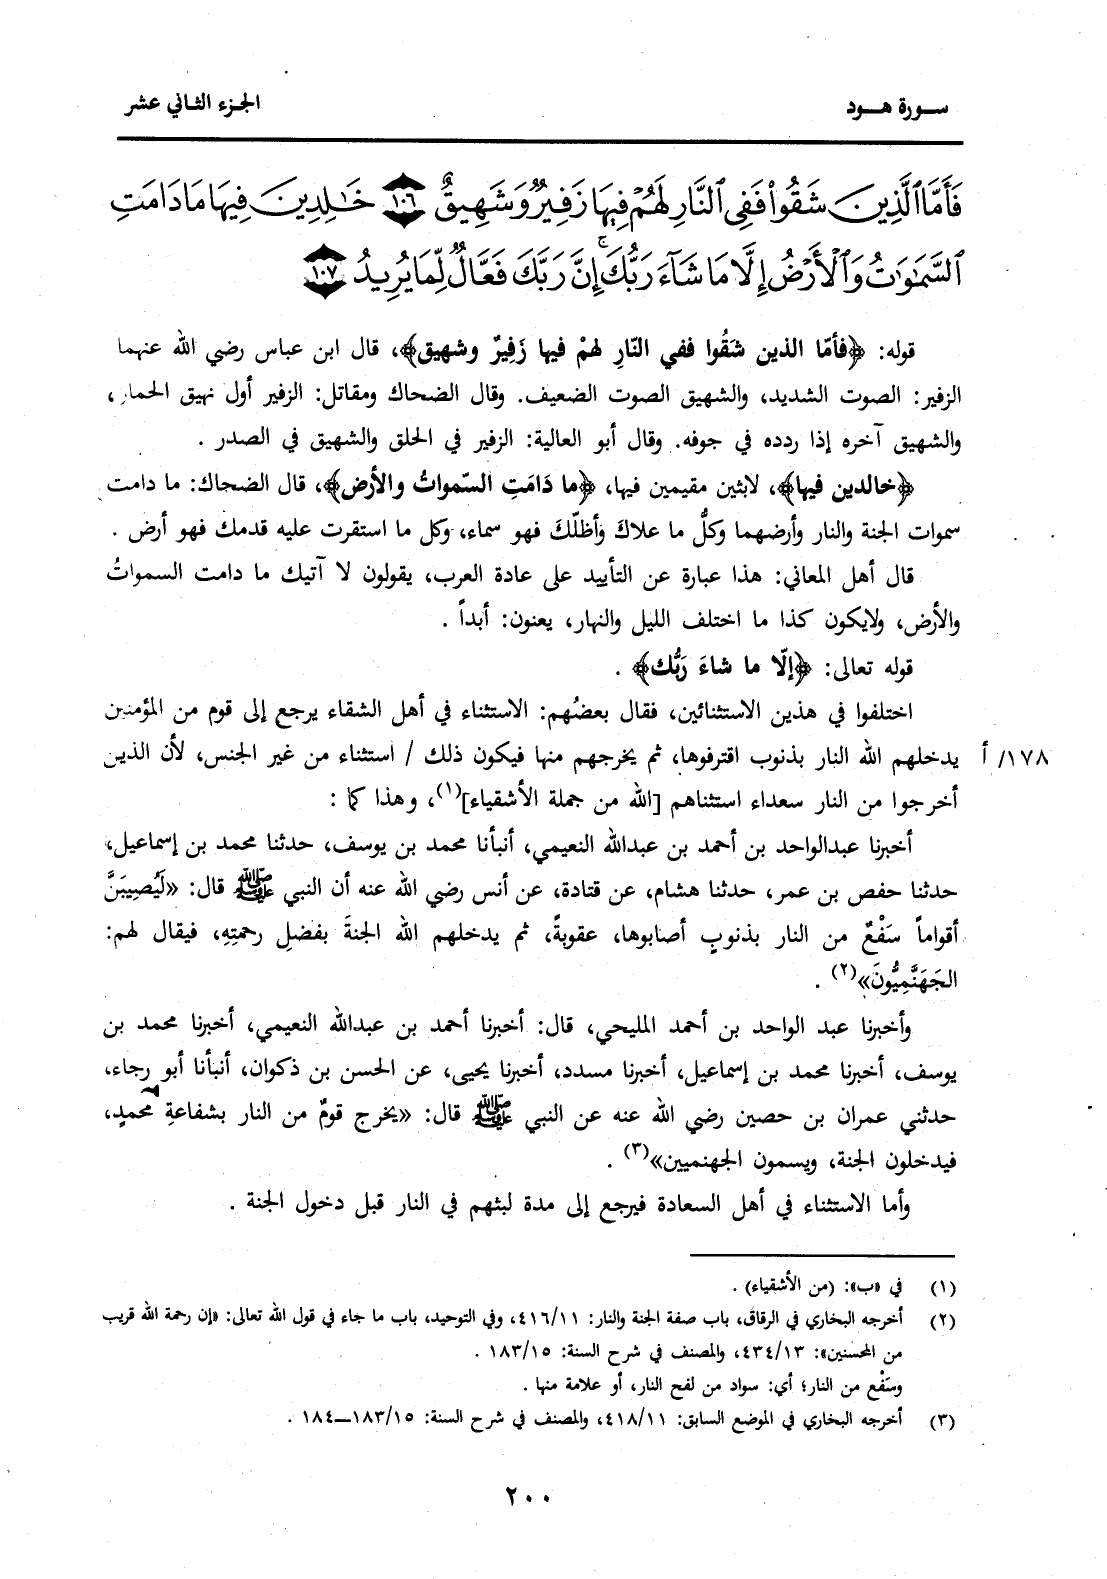 سورة هود
الجزء الثاني عشر
فَأَمَّا ٱلَّذِينَ شَقُوا۟ فَفِى ٱلنَّارِ لَهُمْ فِيهَا زَفِيرٌ وَشَهِيقٌ ١٠٦ خَٰلِدِينَ فِيهَا مَا دَامَتِ
ٱلسَّمَٰوَٰتُ وَٱلْأَرْضُ إِلَّا مَا شَآءَ رَبُّكَ ۚ إِنَّ رَبَّكَ فَعَّالٌ لِّمَا يُرِيدُ ١٠٧
قوله: ﴿فأمّا الذين شَقُوا ففي النّارِ لهمْ فيها زَفِيرٌ وشهيق﴾، قال ابن عباس رضي الله عنهما
الزفير: الصوت الشديد، والشهيق الصوت الضعيف. وقال الضحاك ومقاتل: الزفير أول نهيق الحمار،
والشهيق آخره إذا ردده في جوفه. وقال أبو العالية: الزفير في الحلق والشهيق في الصدر .
﴿خالدين فيها﴾، لابثين مقيمين فيها، ﴿ما دَامَتِ السّمواتُ والأرض﴾، قال الضحاك: ما دامت
سموات الجنة والنار وأرضهما وكلُّ ما علاكَ وأظلّكَ فهو سماء، وكل ما استقرت عليه قدمك فهو أرض .
قال أهل المعاني: هذا عبارة عن التأييد على عادة العرب، يقولون لا آتيك ما دامت السمواتُ
والأرض، ولايكون كذا ما اختلف الليل والنهار، يعنون: أبداً .
قوله تعالى: ﴿إلّا ما شاءَ رَبُّك﴾ .
اختلفوا في هذين الاستثنائين، فقال بعضُهم: الاستثناء في أهل الشقاء يرجع إلى قوم من المؤمنين
١٧٨/ أ يدخلهم الله النار بذنوب اقترفوها، ثم يخرجهم منها فيكون ذلك / استثناء من غير الجنس، لأن الذين
أخرجوا من النار سعداء استثناهم [الله من جملة الأشقياء](١)، وهذا كما :
أخبرنا عبدالواحد بن أحمد بن عبدالله النعيمي، أنبأنا محمد بن يوسف، حدثنا محمد بن إسماعيل،
حدثنا حفص بن عمر، حدثنا هشام، عن قتادة، عن أنس رضي الله عنه أن النبي ﷺ قال: «لَيُصِيبَنَّ
أقواماً سَفْعٌ من النار بذنوبٍ أصابوها، عقوبةً، ثم يدخلهم الله الجنةَ بفضلِ رحمتِهِ، فيقال لهم:
الجَهَنَّمِيُّونَ»(٢) .
وأخبرنا عبد الواحد بن أحمد المليحي، قال: أخبرنا أحمد بن عبدالله النعيمي، أخبرنا محمد بن
يوسف، أخبرنا محمد بن إسماعيل، أخبرنا مسدد، أخبرنا يحيى، عن الحسن بن ذكوان، أنبأنا أبو رجاء،
حدثني عمران بن حصين رضي الله عنه عن النبي ﷺ قال: «يخرج قومٌ من النار بشفاعةِ محمدٍ،
فيدخلون الجنة، ويسمون الجهنميين»(٣) .
وأما الاستثناء في أهل السعادة فيرجع إلى مدة لبثهم في النار قبل دخول الجنة .
(١) في «ب»: (من الأشقياء) .
(٢) أخرجه البخاري في الرقاق، باب صفة الجنة والنار: ٤١٦/١١، وفي التوحيد، باب ما جاء في قول الله تعالى: «إن رحمة الله قريب
من المحسنين»: ٤٣٤/١٣، والمصنف في شرح السنة: ١٨٣/١٥ .
وسَفْع من النار؛ أي: سواد من لفح النار، أو علامة منها .
(٣) أخرجه البخاري في الموضع السابق: ٤١٨/١١، والمصنف في شرح السنة: ١٨٣/١٥ــ١٨٤ .
٢٠٠